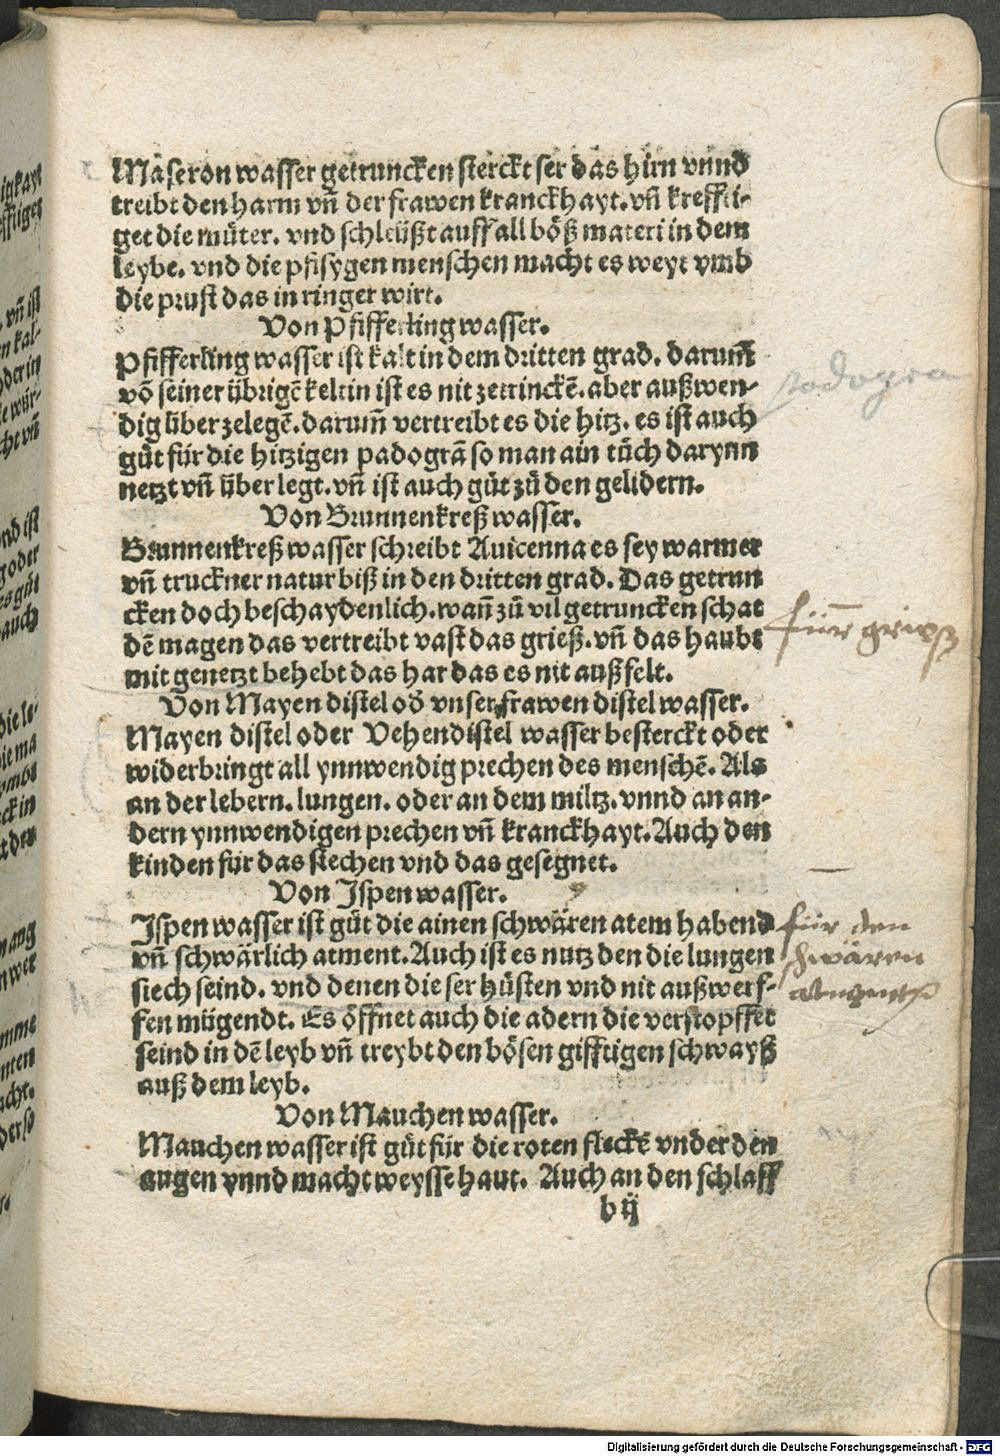 Maseron wasser getruncken sterckt ser das hirn vnnd
treibt den harm vñ der frawen kranckhayt. vñ kreffti-
get die můter. vnd schleüßt auff all böß materi in dem
leybe. vnd die pfisygen menschen macht es weyt vmb
die prust das in ringer wirt.
Von Pfifferling wasser.
Pfifferling wasser ist kalt in dem dritten grad. darum̃
võ seiner übrigẽ keltin ist es nit zetrinckẽ. aber außwen-
dig über zelegẽ. darum̃ vertreibt es die hitz. es ist auch
gůt für die hitzigen padogrã so man ain tůch darynn
netzt vñ über legt. vñ ist auch gůt zů den gelidern.
Von Brunnenkreß wasser.
Brunnenkreß wasser schreibt Auicenna es sey warmer
vñ truckner natur biß in den dritten grad. Das getrun
cken doch beschaydenlich. wañ zů vil getruncken schat
dẽ magen das vertreibt vast das grieß. vñ das haubt
mit genetzt behebt das har das es nit auß felt.
Von Mayen distel od̃ vnser frawen distel wasser.
Mayen distel oder Vehendistel wasser besterckt oder
widerbringt all ynnwendig prechen des menschẽ. Als
an der lebern. lungen. oder an dem miltz. vnnd an an-
dern ynnwendigen prechen vñ kranckhayt. Auch den
kinden für das stechen vnd das gesegnet.
Von Jspen wasser.
Jspen wasser ist gůt die ainen schwären atem habend
vñ schwärlich atment. Auch ist es nutz den die lungen
siech seind. vnd denen die ser hůsten vnd nit außwerf-
fen mügendt. Es öffnet auch die adern die verstopffet
seind in dẽ leyb vñ treybt den bösen gifftigen schwayß
auß dem leyb.
Von Mauchen wasser.
Mauchen wasser ist gůt für die roten fleckẽ vnder den
augen vnnd macht weysse haut. Auch an den schlaff
b ij
padogram
für grieß
für den
schwären
Digitalisierung gefördert durch die Deutsche Forschungsgemeinschaft - DFG